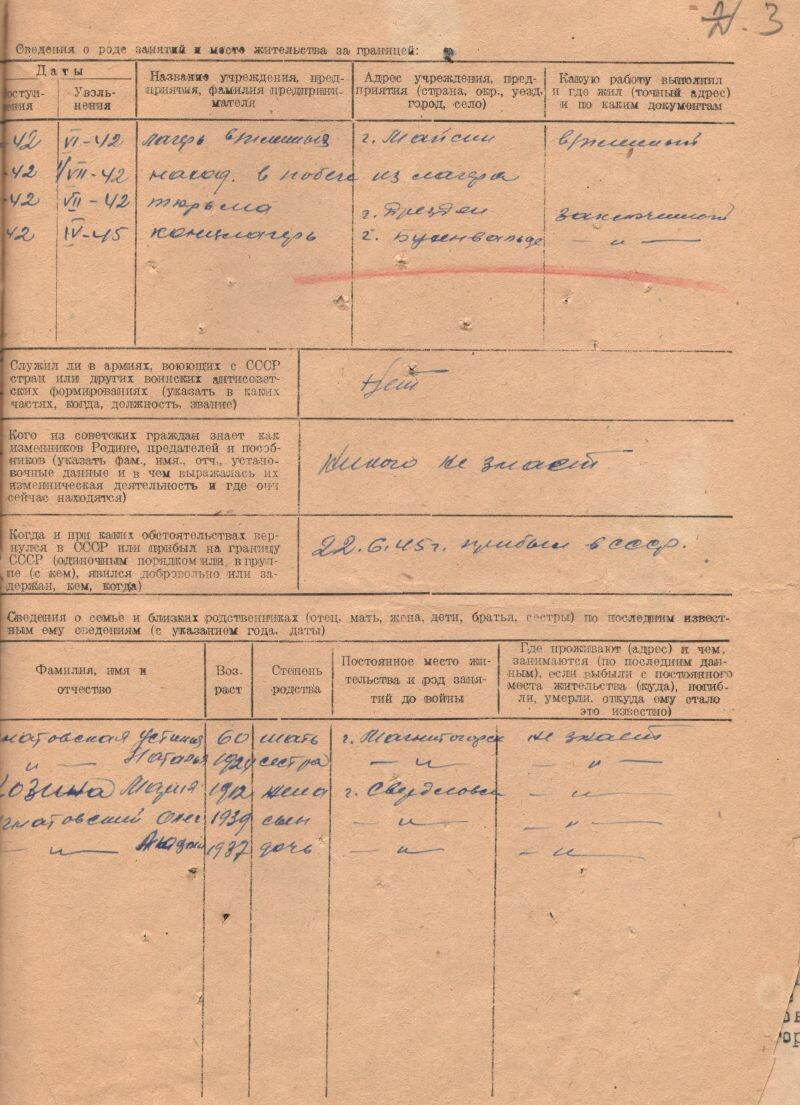 Н. 3
Сведения о роде занятий и месте жительства за границей:
Даты
оступ-
ения
Уволь-
нения
Название учреждения, пред-
приятия, фамилия предприни-
мателя
Адрес учреждения, пред-
приятия (страна, окр., уезд,
город, село)
Какую работу выполнял
и где жил (точный адрес)
и по каким документам
42 VI-42 лагерь в/пленных г. Майсин в/пленный
42 VII-42 наход. в побеге из лагеря
42 VII-42 тюрьма г. Дрезден заключенный
42 IV-45 концлагерь г. Бухенвальде — „ —
Служил ли в армиях, воюющих с СССР
стран или других воинских антисовет-
ских формированиях (указать в каких
частях, когда, должность, звание)
Нет
Кого из советских граждан знает как
изменников Родине, предателей и пособ-
ников (указать фам., имя., отч., устано-
вочные данные и в чем выражалась их
изменническая деятельность и где они
сейчас находятся)
никого не знает
Когда и при каких обстоятельствах вер-
нулся в СССР или прибыл на границу
СССР (одиночным порядком или в груп-
пе (с кем), явился добровольно или за-
держан, кем, когда)
22.6.45г. прибыл в СССР.
Сведения о семье и близких родственниках (отец, мать, жена, дети, братья, сестры) по последним извест-
ным ему сведениям (с указанием года, даты)
Фамилия, имя и
отчество
Воз-
раст
Степень
родства
Постоянное место жи-
тельства и род заня-
тий до войны
Где проживают (адрес) и чем,
занимаются (по последним дан-
ным), если выбыли с постоянного
места жительства (куда), погиб-
ли, умерли, откуда ему стало
это известно)
матовская Устиния 60 мать г. Магнитогорск не знает
— „ — Наталья 1924 сестра — „ — — „ —
Мария 1912 жена г. Свердловск — „ —
матовский Олег 1939 сын — „ — — „ —
— „ — 1937 дочь — „ — — „ —